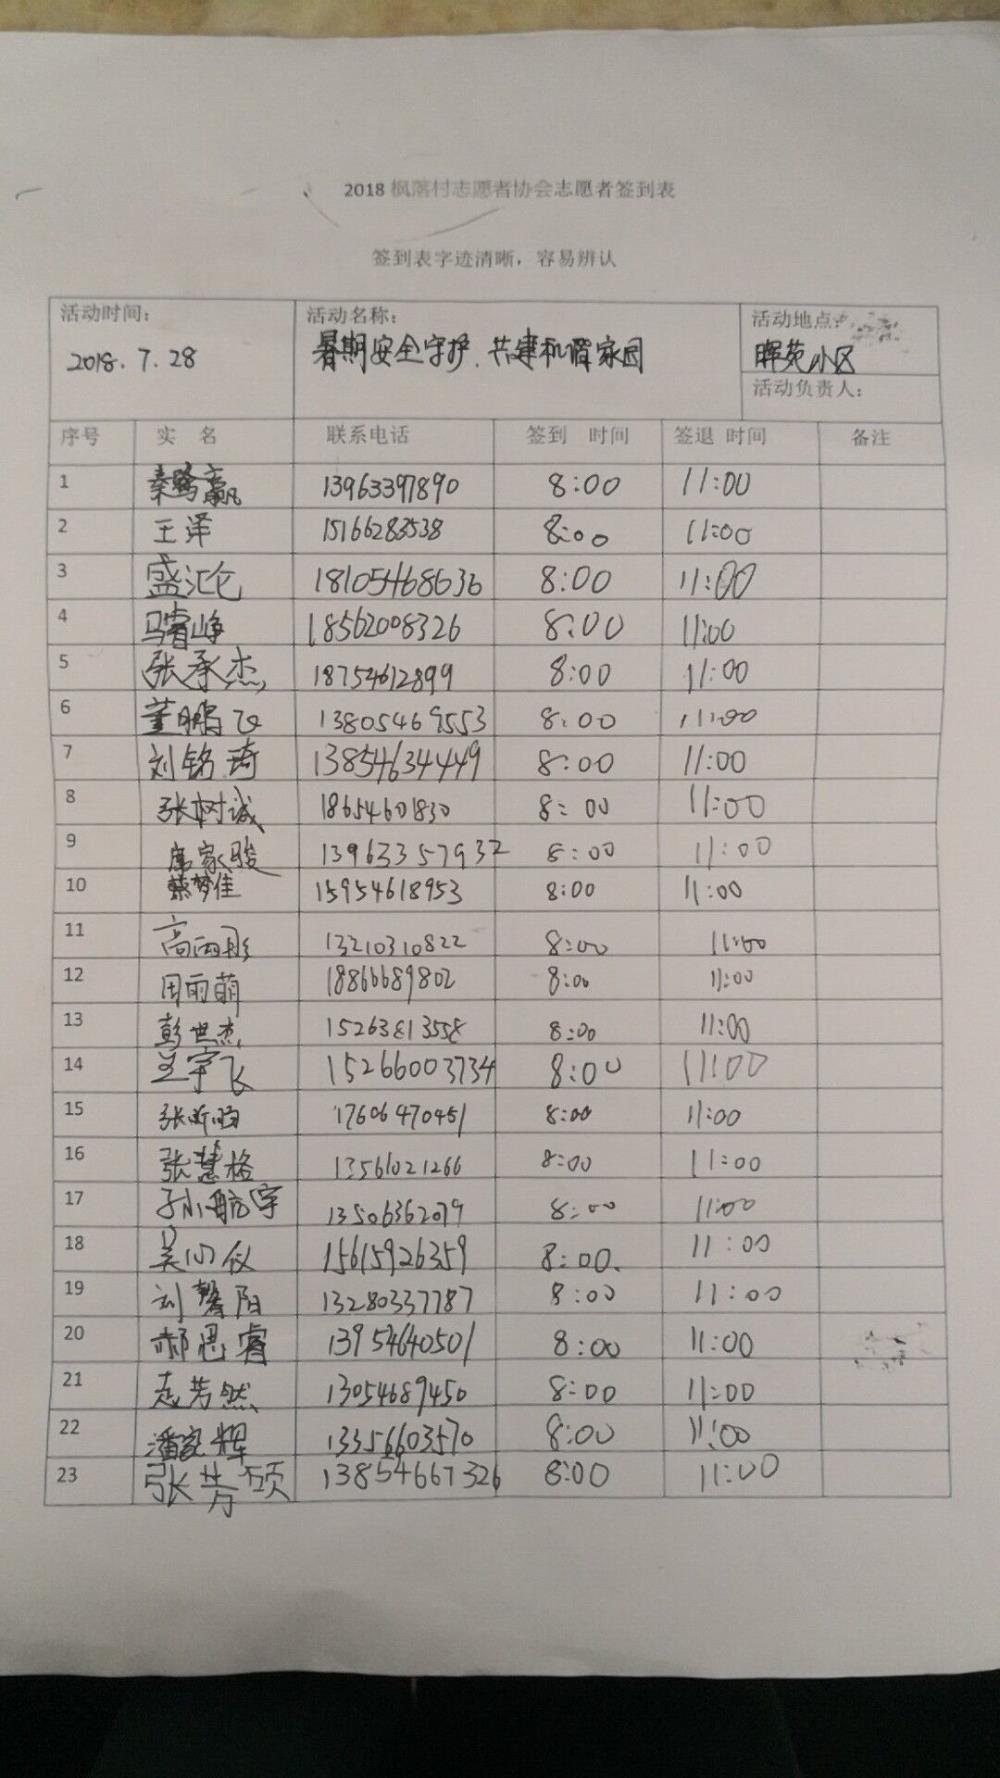 2018 枫落村志愿者协会志愿者签到表
签到表字迹清晰，容易辨认
活动时间： 活动名称： 活动地点：
2018.7.28 暑期安全守护.共建和谐家园 晖苑小区
活动负责人：
序号 实 名 联系电话 签到 时间 签退 时间 备注
1 秦鹭赢 13963397890 8:00 11:00
2 王泽 15166283538 8:00 11:00
3 盛汇仑 18105468636 8:00 11:00
4 马睿峥 18562008326 8:00 11:00
5 张承杰 18754612899 8:00 11:00
6 董鹏飞 13805469553 8:00 11:00
7 刘铭琦 13854634449 8:00 11:00
8 张树诚 18654601830 8:00 11:00
9 席家骏 13963357932 8:00 11:00
10 蔡梦佳 15954618953 8:00 11:00
11 高雨彤 13210310822 8:00 11:00
12 周雨萌 18866689802 8:00 11:00
13 彭世杰 15263813558 8:00 11:00
14 王宇飞 15266003734 8:00 11:00
15 张昕 17606470451 8:00 11:00
16 张慧格 13561021266 8:00 11:00
17 孙航宇 13506362079 8:00 11:00
18 吴心仪 15615926359 8:00. 11:00
19 刘馨阳 13280337787 8:00 11:00
20 郝思睿 13954640501 8:00 11:00
21 芳然 13054689450 8:00 11:00
22 潘家辉 13356603570 8:00 11:00
23 张芳硕 13854667326 8:00 11:00